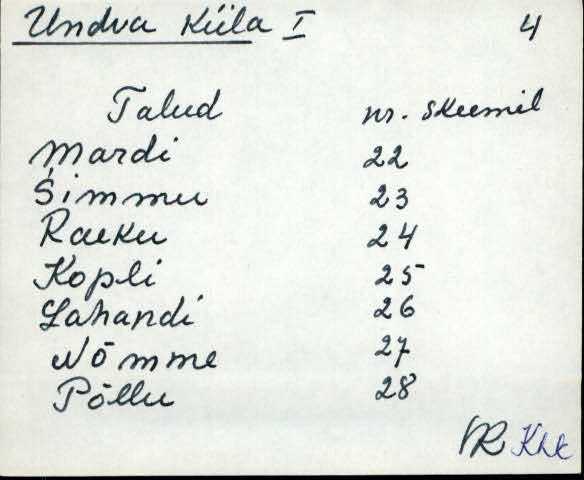 Undva Küla I 4
Talud nr. skeemil
Mardi 22
Simmu 23
Raeku 24
Kopli 25
Lahandi 26
Nõmme 27
Põllu 28
VR Khk